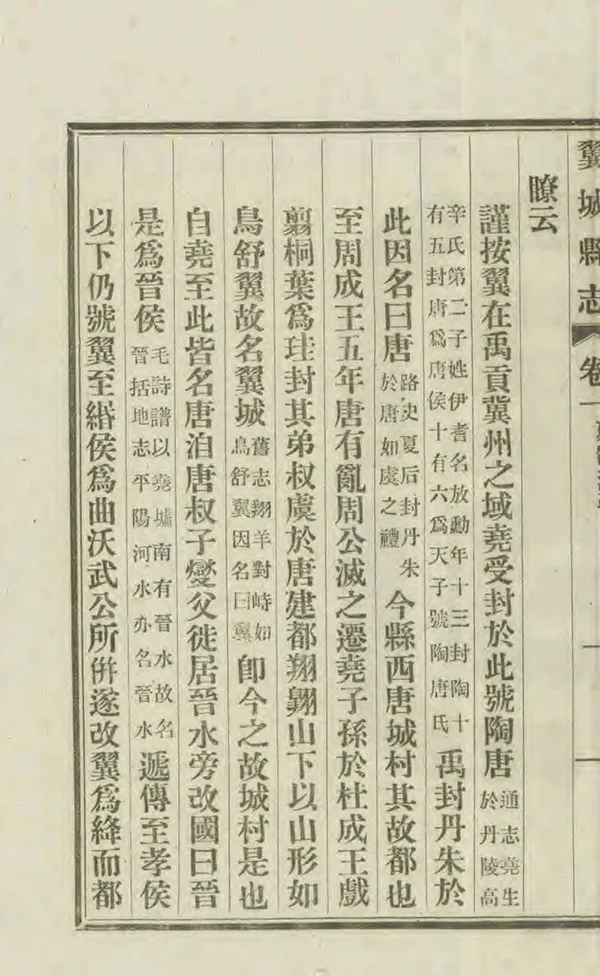 翼城縣志 卷一
瞭云
謹按翼在禹貢冀州之域堯受封於此號陶唐通志堯生於丹陵高
辛氏第二子姓伊耆名放勳年十三封陶十有五封唐爲唐侯十有六爲天子號陶唐氏禹封丹朱於
此因名曰唐路史夏后封丹朱於唐如虞之禮今縣西唐城村其故都也
至周成王五年唐有亂周公滅之遷堯子孫於杜成王戲
翦桐葉爲珪封其弟叔虞於唐建都翔翺山下以山形如
鳥舒翼故名翼城舊志翔羊對峙如鳥舒翼因名曰翼卽今之故城村是也
自堯至此皆名唐洎唐叔子燮父徙居晉水旁改國曰晉
是爲晉侯毛詩譜以堯墟南有晉水故名晉括地志平陽河水亦名晉水遞傳至孝侯
以下仍號翼至緡侯爲曲沃武公所併遂改翼爲絳而都